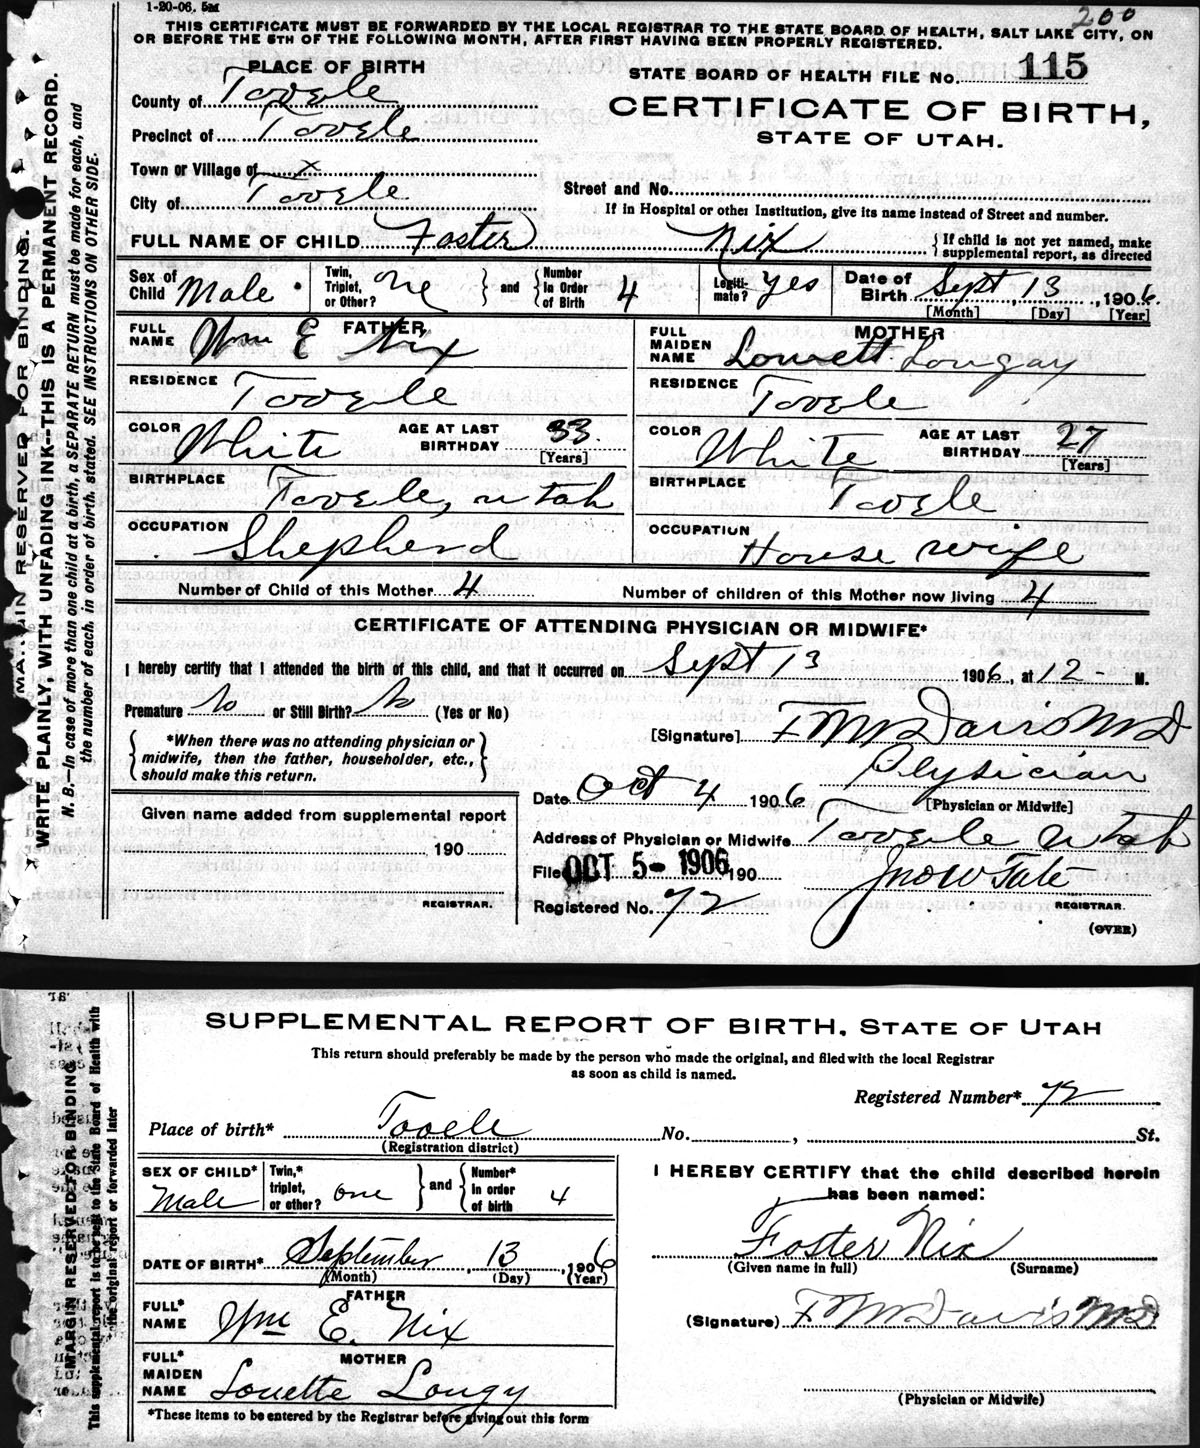 1-20-06. 5M
200
THIS CERTIFICATE MUST BE FORWARDED BY THE LOCAL REGISTRAR TO THE STATE BOARD OF HEALTH, SALT LAKE CITY, ON
OR BEFORE THE 5TH OF THE FOLLOWING MONTH, AFTER FIRST HAVING BEEN PROPERLY REGISTERED.
MARGIN RESERVED FOR BINDING.
WRITE PLAINLY, WITH UNFADING INK--THIS IS A PERMANENT RECORD.
N. B.—In case of more than one child at a birth, a SEPARATE RETURN must be made for each, and
the number of each, in order of birth, stated. SEE INSTRUCTIONS ON OTHER SIDE.
PLACE OF BIRTH
STATE BOARD OF HEALTH FILE NO. 115
County of Tooele
CERTIFICATE OF BIRTH,
Precinct of Tooele
STATE OF UTAH.
Town or Village of x
City of Tooele
Street and No.
If in Hospital or other Institution, give its name instead of Street and number.
FULL NAME OF CHILD Foster Nix { If child is not yet named, make supplemental report, as directed
Sex of Child Male Twin, Triplet, or Other? one } and { Number In Order of Birth 4 Legitimate? Yes Date of Birth Sept, 13, 1906.
[Month] [Day] [Year]
FATHER
FULL NAME Wm E Nix
MOTHER
FULL MAIDEN NAME Louett Longay
RESIDENCE Tooele
RESIDENCE Tooele
COLOR White AGE AT LAST BIRTHDAY 33 [Years]
COLOR White AGE AT LAST BIRTHDAY 27 [Years]
BIRTHPLACE Tooele, Utah
BIRTHPLACE Tooele
OCCUPATION Shepherd
OCCUPATION House wife
Number of Child of this Mother 4 Number of children of this Mother now living 4
CERTIFICATE OF ATTENDING PHYSICIAN OR MIDWIFE*
I hereby certify that I attended the birth of this child, and that it occurred on Sept 13 1906, at 12 - M.
Premature No or Still Birth? No (Yes or No)
[Signature] F M Davis M D
{ *When there was no attending physician or midwife, then the father, householder, etc., should make this return. }
Physician
[Physician or Midwife]
Date Oct 4 1906
Given name added from supplemental report
190
REGISTRAR.
Address of Physician or Midwife Tooele Utah
Filed OCT 5- 1906 190
Jno W Tate
REGISTRAR.
Registered No. 72
(OVER)
MARGIN RESERVED FOR BINDING
This supplemental report is to be sent to the State Board of Health with
the original report or forwarded later
SUPPLEMENTAL REPORT OF BIRTH, STATE OF UTAH
This return should preferably be made by the person who made the original, and filed with the local Registrar
as soon as child is named.
Registered Number* 72
Place of birth* Tooele No. , St.
(Registration district)
SEX OF CHILD* Male Twin,* triplet, or other? one } and { Number* in order of birth 4
I HEREBY CERTIFY that the child described herein
has been named:
Foster Nix
(Given name in full) (Surname)
DATE OF BIRTH* September, 13, 1906
(Month) (Day) (Year)
FATHER
FULL* NAME Wm E. Nix
(Signature) F M Davis M D
MOTHER
FULL* MAIDEN NAME Louette Longy
(Physician or Midwife)
*These items to be entered by the Registrar before giving out this form